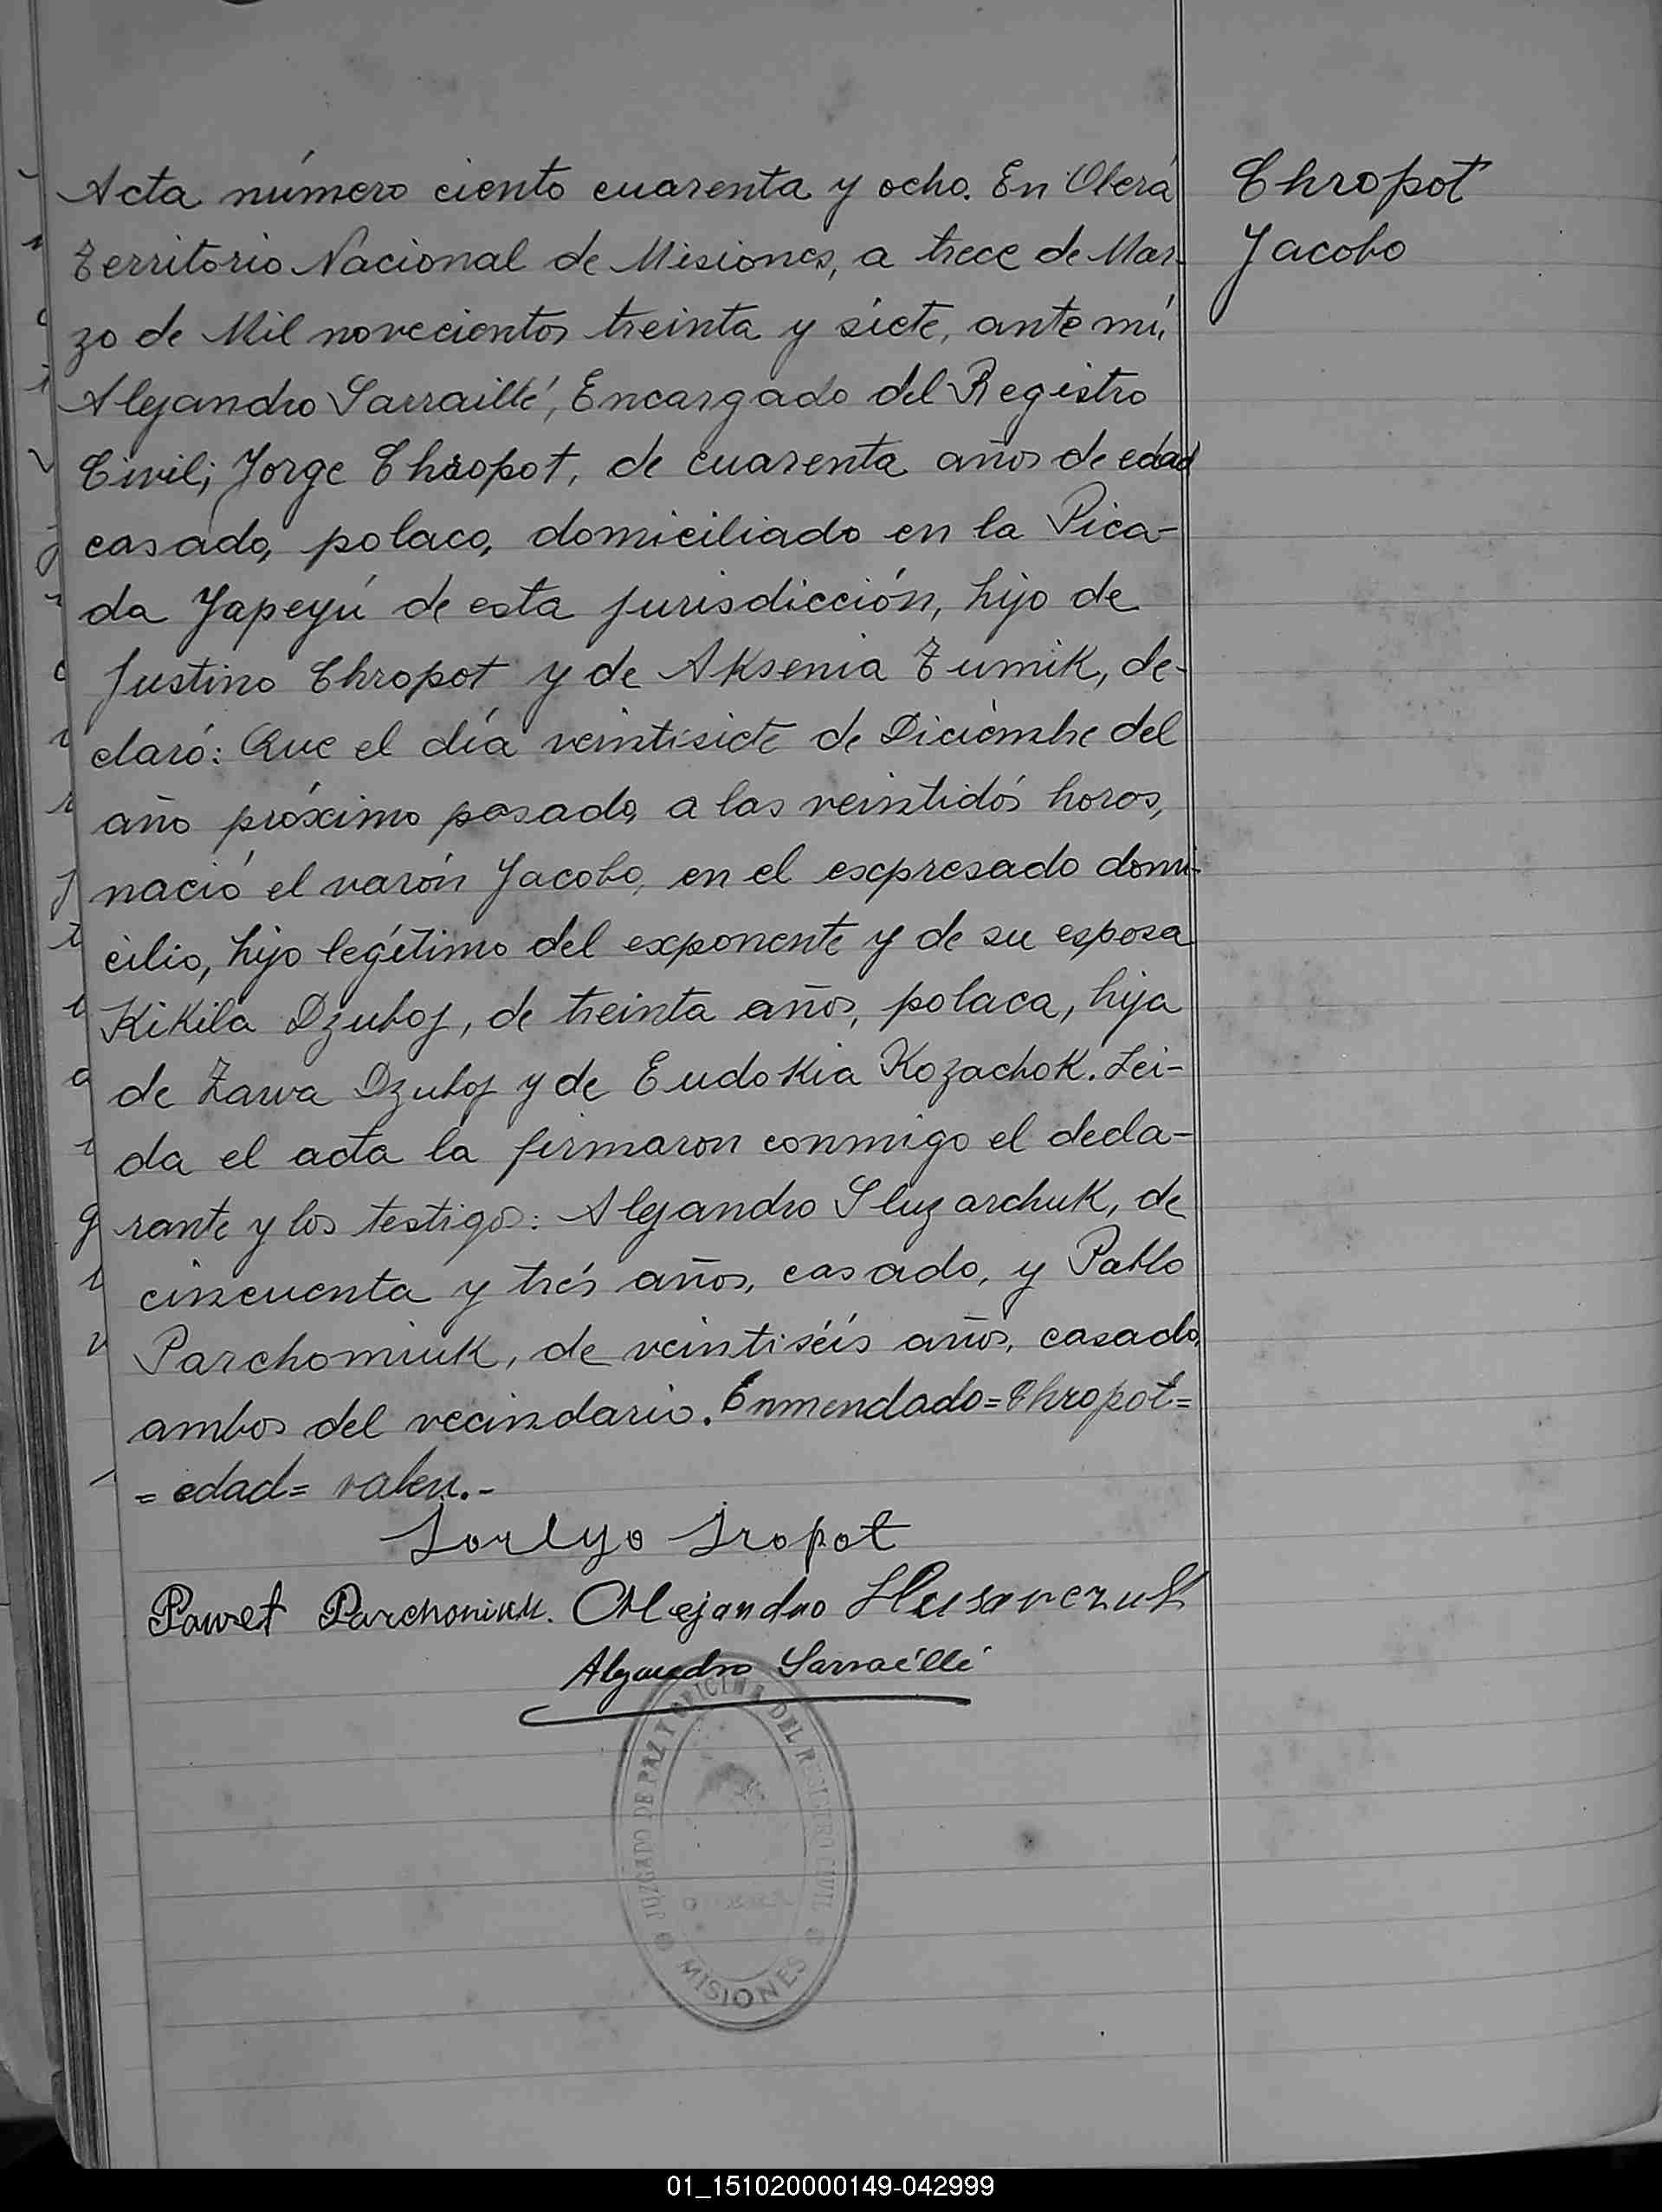 Acta número ciento cuarenta y ocho. En Oberá
Territorio Nacional de Misiones, a trece de Mar-
zo de Mil novecientos treinta y siete, ante mí,
Alejandro Sarraillé, Encargado del Registro
Civil; Jorge Chropot, de cuarenta años de edad
casado, polaco, domiciliado en la Pica-
da Yapeyú de esta jurisdicción, hijo de
Justino Chropot y de Aksenia Tumik, de-
claró: Que el día veintisiete de Diciembre del
año próximo pasado, a las veintidós horas,
nació el varón Jacobo, en el expresado domi-
cilio, hijo legítimo del exponente y de su esposa
Kikila Dzuboj, de treinta años, polaca, hija
de Zawa Dzuboj y de Eudokia Kozachok. Leí-
da el acta la firmaron conmigo el decla-
rante y los testigos: Alejandro Sluzarchuk, de
cincuenta y trés años, casado, y Pablo
Parchomiuk, de veintiséis años, casado,
ambos del vecindario. Enmendado=Chropot=
=edad= valen.-
Chropot
Jacobo
Jropot
Parchoniuk. Alejandro Slusarczuk
Alejandro Sarraillé
JUZGADO DE PAZ Y OFICINA DEL REGISTRO CIVIL
MISIONES
01_151020000149-042999